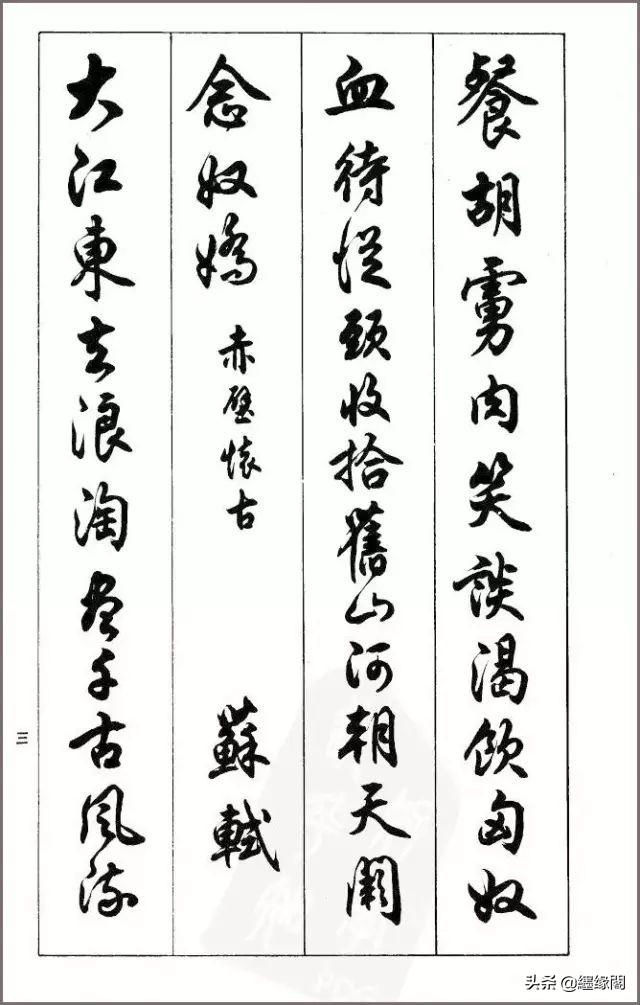 餐胡虜肉笑談渴飲匈奴
血待從頭收拾舊山河朝天闕
念奴嬌 赤壁懷古 蘇軾
大江東去浪淘盡千古風流
三
头条 @缠缘阁